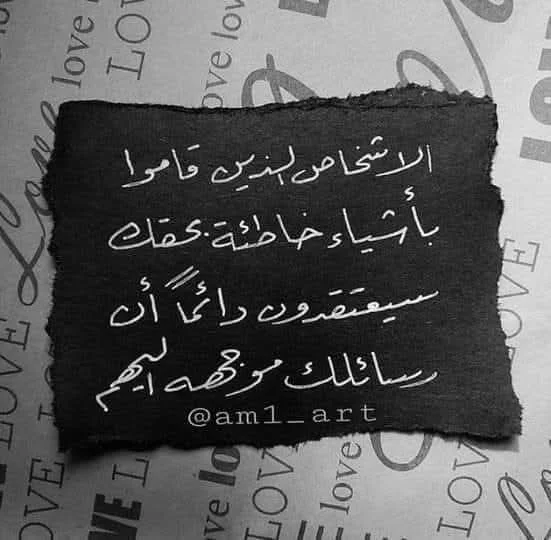 الاشخاص الذين قاموا
بأشياء خاطئة بحقك
سيعتقدون دائماً أن
رسائلك موجهه اليهم
@am1_art
love
LOVE
love
LOVE
Love
LOVE
LOVE
LOVE
love
LOVE
love
LOVE
LOVE